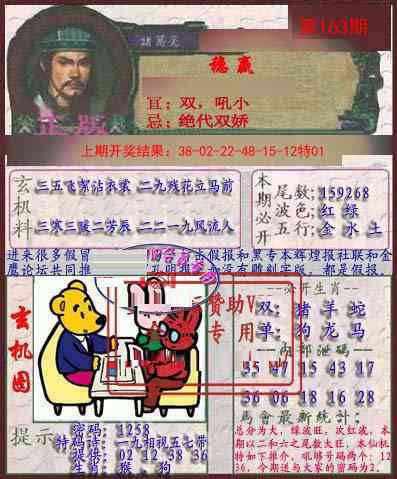 第163期
諸葛亮
稳赢
宜;双,吼小
忌;绝代双娇
正版
上期开奖结果: 38-02-22-48-15-12特01
玄机料
三五飞絮沾衣裳 二九残花立马前
三寒三暖二芳辰 二二一九风流人
本期必开
尾数;159268
波色;红 绿
五行;金 水 土
进来很多假冒
击假报和黑专本辉煌报社联和金
鹰论坛共同推
都是假报.
玄机图
赞助V
专用
必开生肖
双: 猪 羊 蛇
单: 狗 龙 马
内部泄码
35 47 15 43 17
36 06 18 16 28
馬會最新統計:
总分为大, 绿波旺, 次红波, 本
期以二和六之尾数大旺, 本仙机
特如下推介, 吼够号码两个: 12
36, 今期送与大家的密码为2.
提示
密码: 1258
特码诗: 一九相视五七带
提供: 02 12 38 36
生肖: 猴, 狗